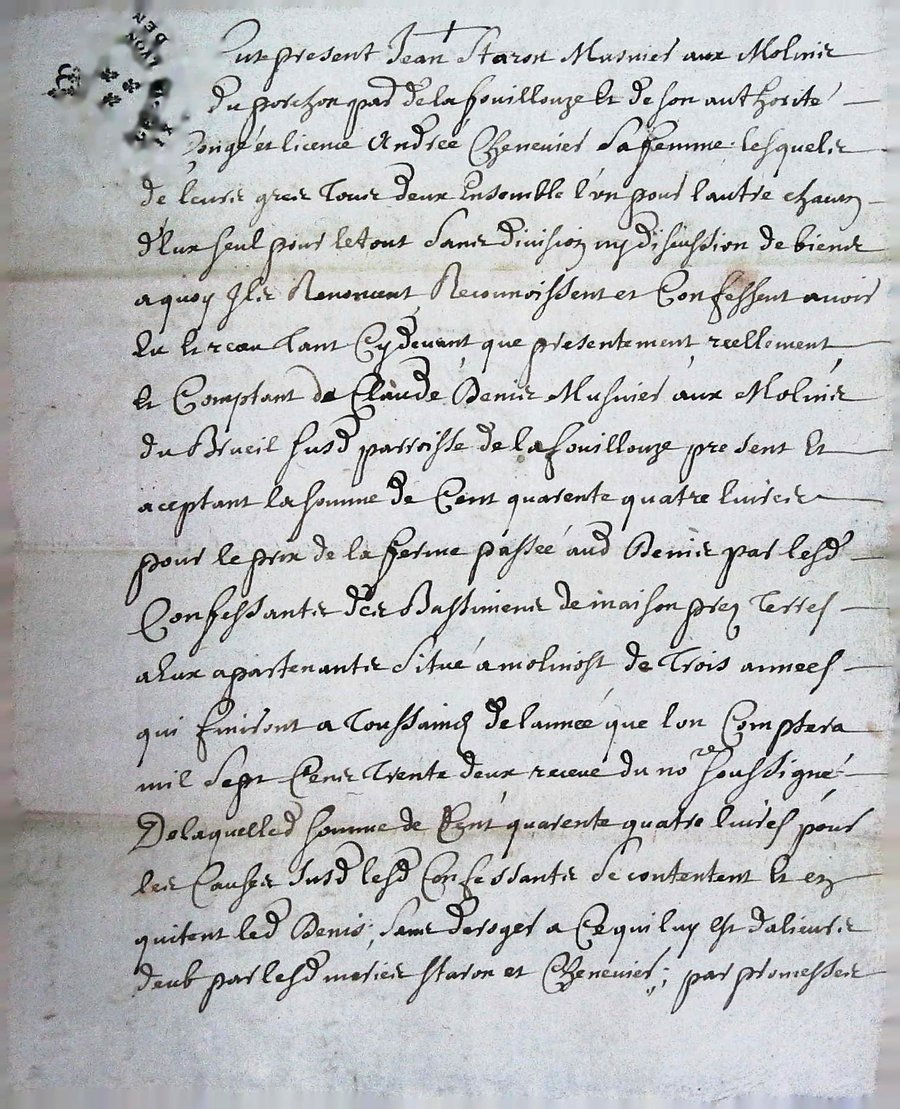 Fut present Jean Staron Musnier aux Molins
du porchon par de la fouillouze et de son authorité
Congé et licence Andreé Chenevier Sa femme lesquels
de leurs grez Tous deux Ensemble l'vn pour l'autre chacun
d'Eux seul pour le tout Sans division ny discussion de biens
a quoy Ils Renoncent Reconnoissent et Confessent avoir
Eu Et receu Tant Cy devant que presentement reellement
Et Comptant de Claude Denis Musnier aux Molins
du Brueil susd parroisse de la fouillouze present Et
aceptant la somme de Cent quarente quatre livres
pour le prix de la ferme passeé aud Denis par lesd
Confessants des Bastiments de maison prez Terres
a Eux apartenants Situé a molinost de Trois annees
qui finiront a Toussaincts de l'anneé que l'on Comptera
mil Sept Cents Trente deux receue du nore soussigné
De laquelled somme de Cent quarente quatre livres pour
les Causes susd lesd Confessants se contentent Et en
quitent led Denis, sans deroger a Ce qui luy est d'alieurs
deub par lesd mariés Staron et Chenevier ; par promesses